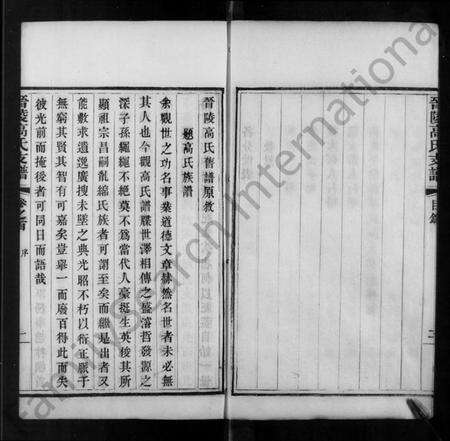 晉陵高氏支譜
目錄
二
晉陵高氏舊譜原敘
題高氏族譜
余觀世之功名事業道德文章赫然名世者未必無
其人也今觀高氏譜牒世澤相傳之盛濬哲發源之
深子孫繩繩不絕莫不為當代人豪挺生英後其所
顯祖宗昌嗣胤綿氏族者可謂至矣而繼是出者又
能敷求遺逸廣搜未墜之典光昭不朽以衍正厥于
無窮其賢其智有可嘉矣豈舉一而廢百得此而失
彼光前而掩後者可同日而語哉
晉陵高氏支譜
卷之首
序
一
FamilySearch International